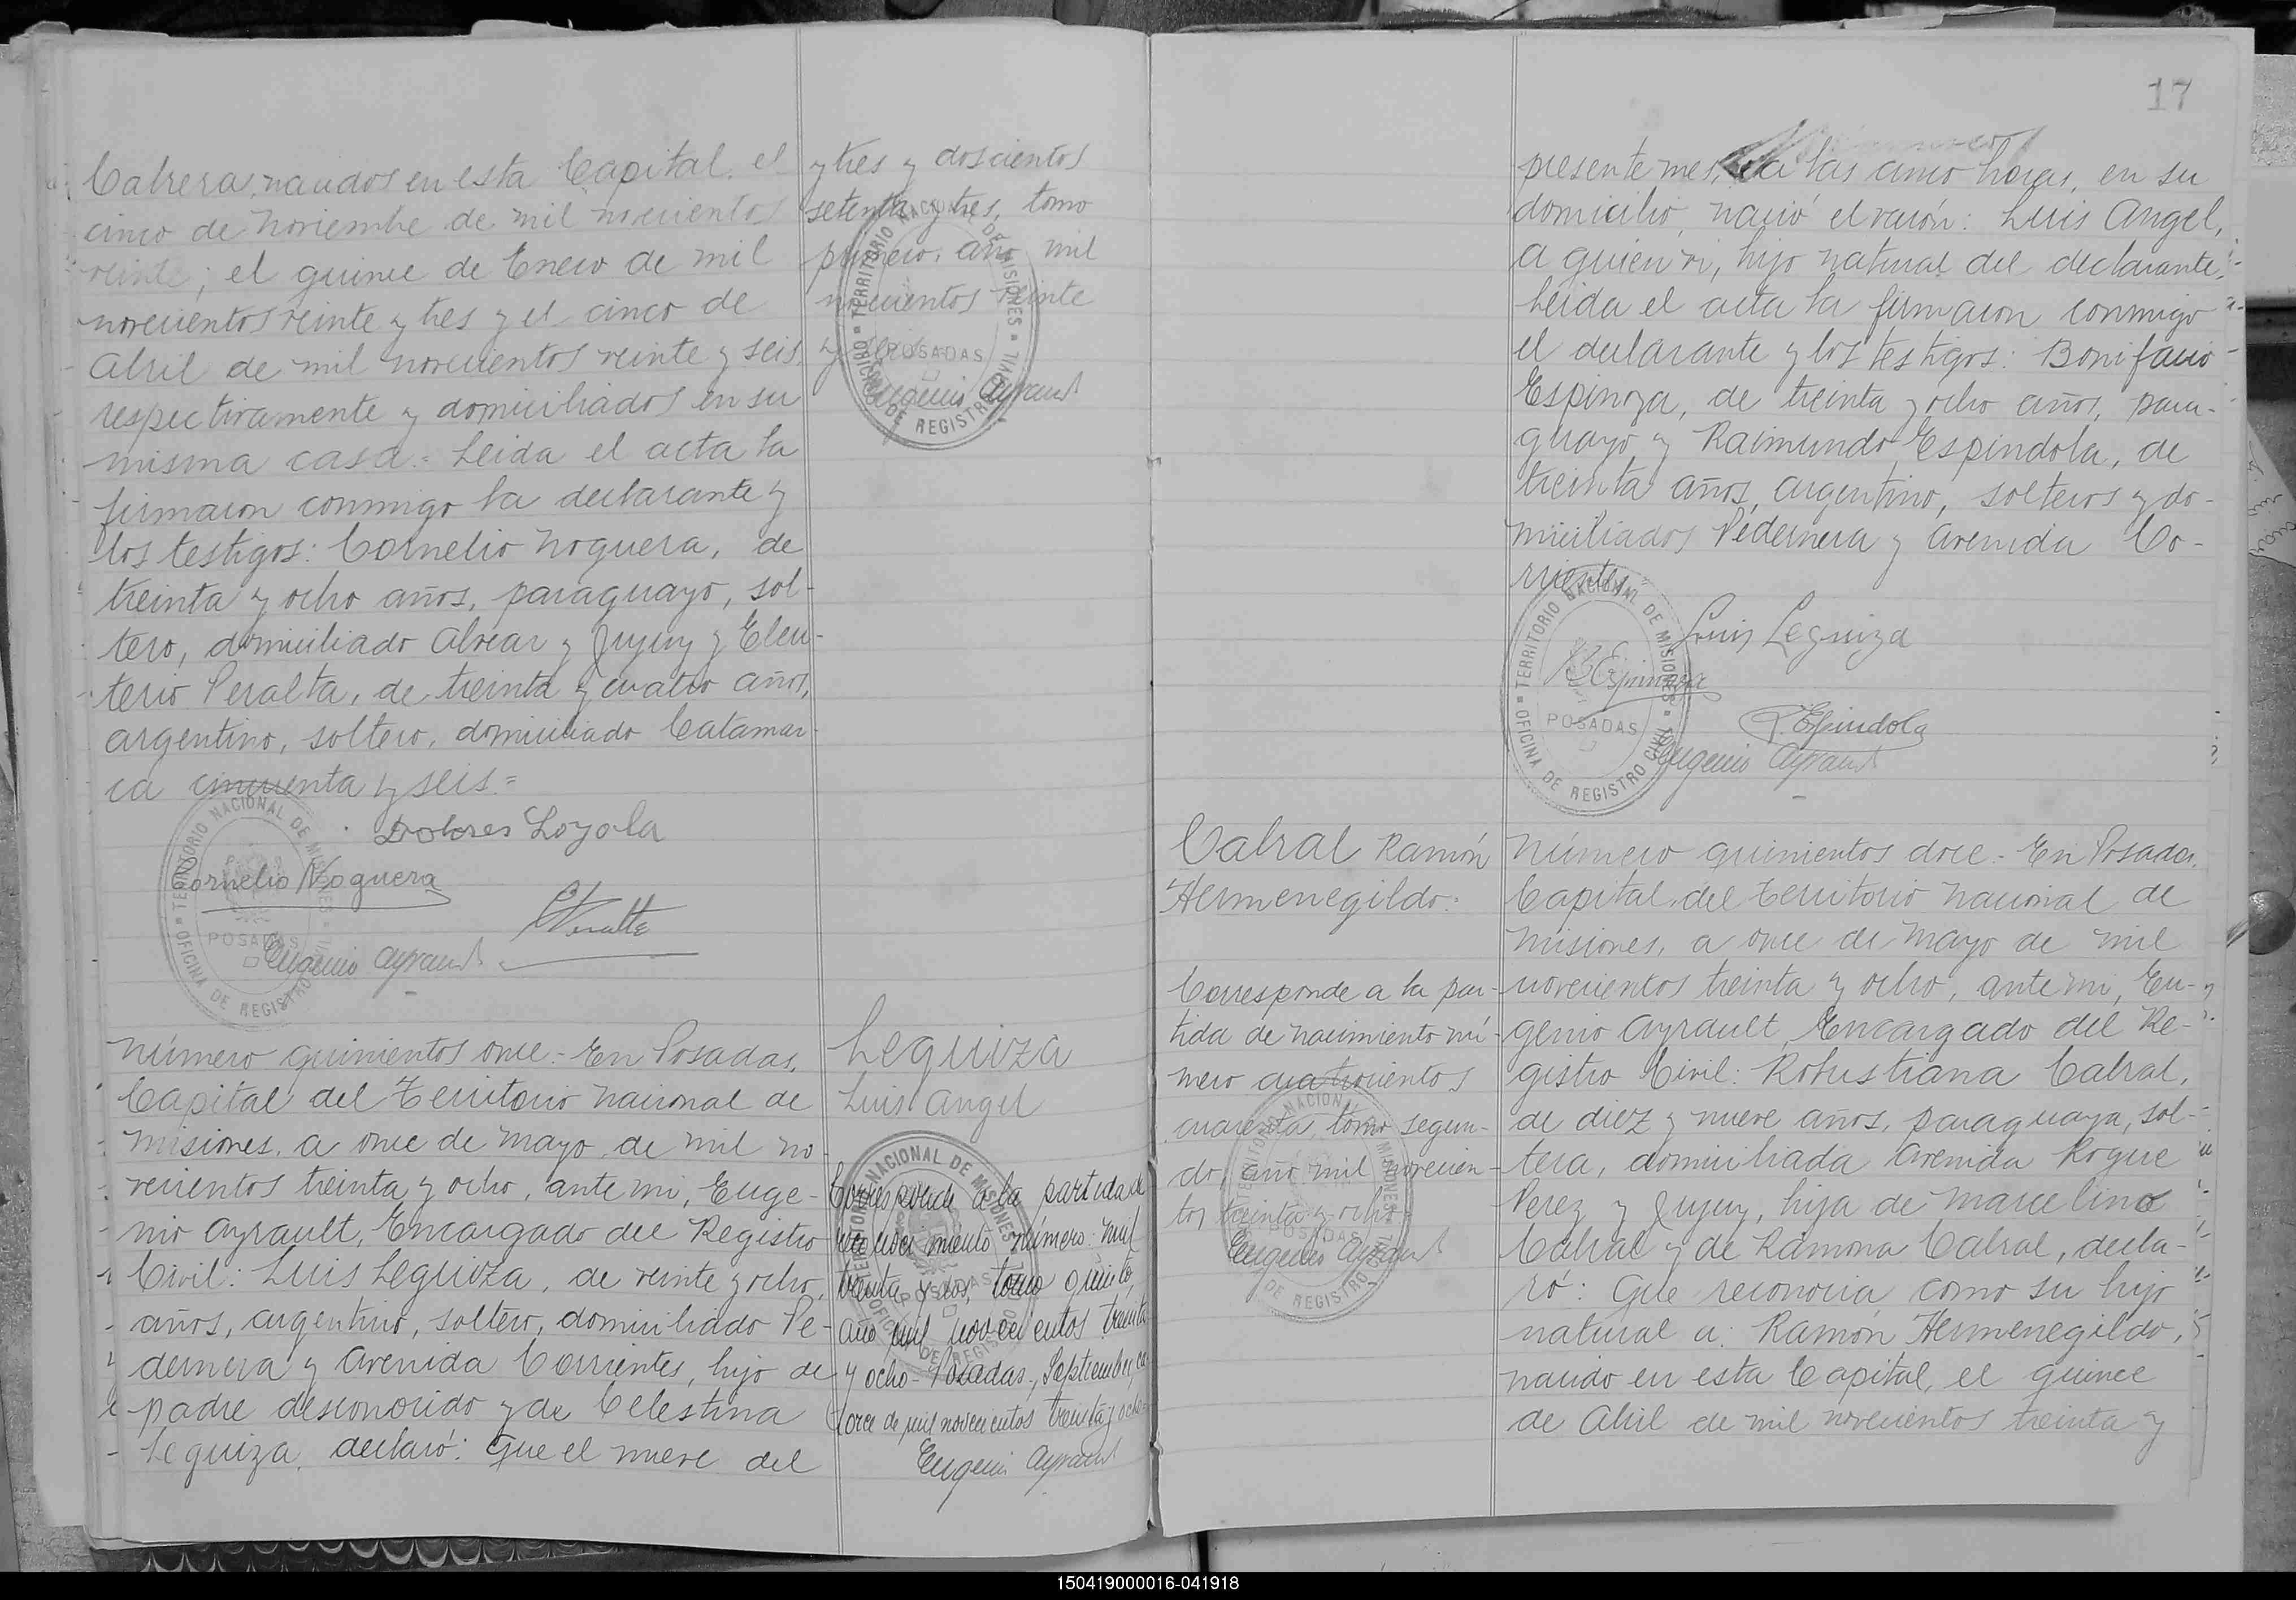 Cabrera, nacidos en esta Capital, el
cinco de Noviembre de mil novecientos
veinte; el quince de Enero de mil
novecientos veinte y tres y el cinco de
Abril de mil novecientos veinte y seis,
respectivamente y domiciliados en su
misma casa.= Leida el acta la
firmaron conmigo la declarante y
los testigos: Cornelio Noguera, de
treinta y ocho años, paraguayo, sol-
tero, domiciliado Alvear y Jujuy y Eleu-
terio Peralta, de treinta y cuatro años,
argentino, soltero, domiciliado Catamar-
ca cincuenta y seis.=
Dolores Loyola
Cornelio Noguera
EPeralta
Eugenio Ayrault
TERRITORIO NACIONAL DE MISIONES
POSADAS
OFICINA DE REGISTRO CIVIL
y tres y doscientos
setenta y tres, tomo
primero, año mil
novecientos veinte
y seis.
Eugenio Ayrault
TERRITORIO NACIONAL DE MISIONES
POSADAS
OFICINA DE REGISTRO CIVIL
Número quinientos once.= En Posadas,
Capital del Territorio Nacional de
Misiones, a once de Mayo de mil no-
vecientos treinta y ocho, ante mi, Euge-
nio Ayrault, Encargado del Registro
Civil: Luis Leguiza, de veinte y ocho
años, argentino, soltero, domiciliado Pe-
dernera y Avenida Corrientes, hijo de
padre desconocido y de Celestina
Leguiza, declaró: Que el nueve del
Leguiza
Luis Angel
Corresponde a la partida de
nacimiento número: mil
treinta y dos, tomo quinto,
año mil novecientos treinta
y ocho- Posadas, Septiembre ca-
torce de mil novecientos treinta y ocho
Eugenio Ayrault
NACIONAL DE MISIONES
POSADAS
17
presente mes, a las cinco horas, en su
domicilio, nació el varón: Luis Angel,
a quien vi, hijo natural del declarante.
Leida el acta la firmaron conmigo
el declarante y los testigos: Bonifacio
Espinoza, de treinta y ocho años, para-
guayo y Raimundo Espindola, de
treinta años, argentino, solteros y do-
miciliados Pedernera y Avenida Co-
rrientes.=
Luis Leguiza
BEspinoza
R.Espindola
Eugenio Ayrault
TERRITORIO NACIONAL DE MISIONES
POSADAS
OFICINA DE REGISTRO CIVIL
Cabral Ramón
Hermenegildo.=
Corresponde a la par-
tida de nacimiento nú-
mero cuatrocientos
cuarenta, tomo segun-
do, año mil novecien-
tos treinta y ocho.
Eugenio Ayrault
TERRITORIO NACIONAL DE MISIONES
POSADAS
Número quinientos doce.= En Posadas,
Capital del Territorio Nacional de
Misiones, a once de Mayo de mil
novecientos treinta y ocho, ante mi, Eu-
genio Ayrault, Encargado del Re-
gistro Civil: Robustiana Cabral,
de diez y nueve años, paraguaya, sol-
tera, domiciliada Avenida Roque
Perez y Jujuy, hija de Marcelino
Cabral y de Ramona Cabral, decla-
ró: Que reconocia como su hijo
natural a: Ramón Hermenegildo,
nacido en esta Capital, el quince
de Abril de mil novecientos treinta y
150419000016-041918